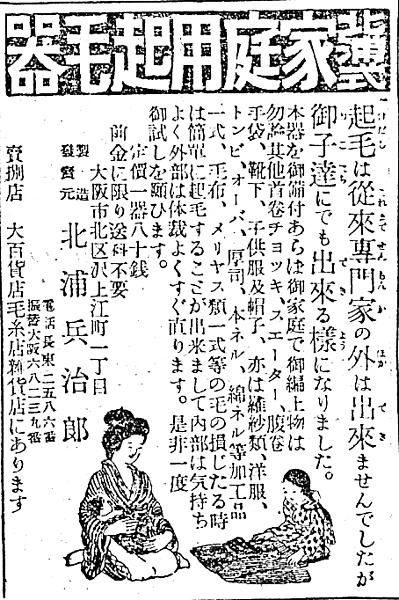 家庭用起毛器
起毛は從來專門家の外は出來ませんでしたが
御子達にでも出來る樣になりました。
本器を御備付あらは御家庭で御編上物は
勿論其他首卷チョッキ、スエーター、腹卷
手袋、靴下、子供服及帽子、亦は羅紗類、洋服、
トンビ、オーバ、厚司、本ネル、綿ネル等加工品
一式、毛布、メリヤス類一式等の毛の損じたる時
は簡單に起毛することが出來まして內部は気持ち
よく外部は体裁よくすぐ直ります。是非一度
御試しを願ひます。
定價一器八十錢
前金に限り送料不要
製造發賣元
大阪市北区沢上江町一丁目
北浦兵治郎
電話長東二五八六番
振替大阪六八二三九番
賣捌店 大百貨店毛糸店雜貨店にあります